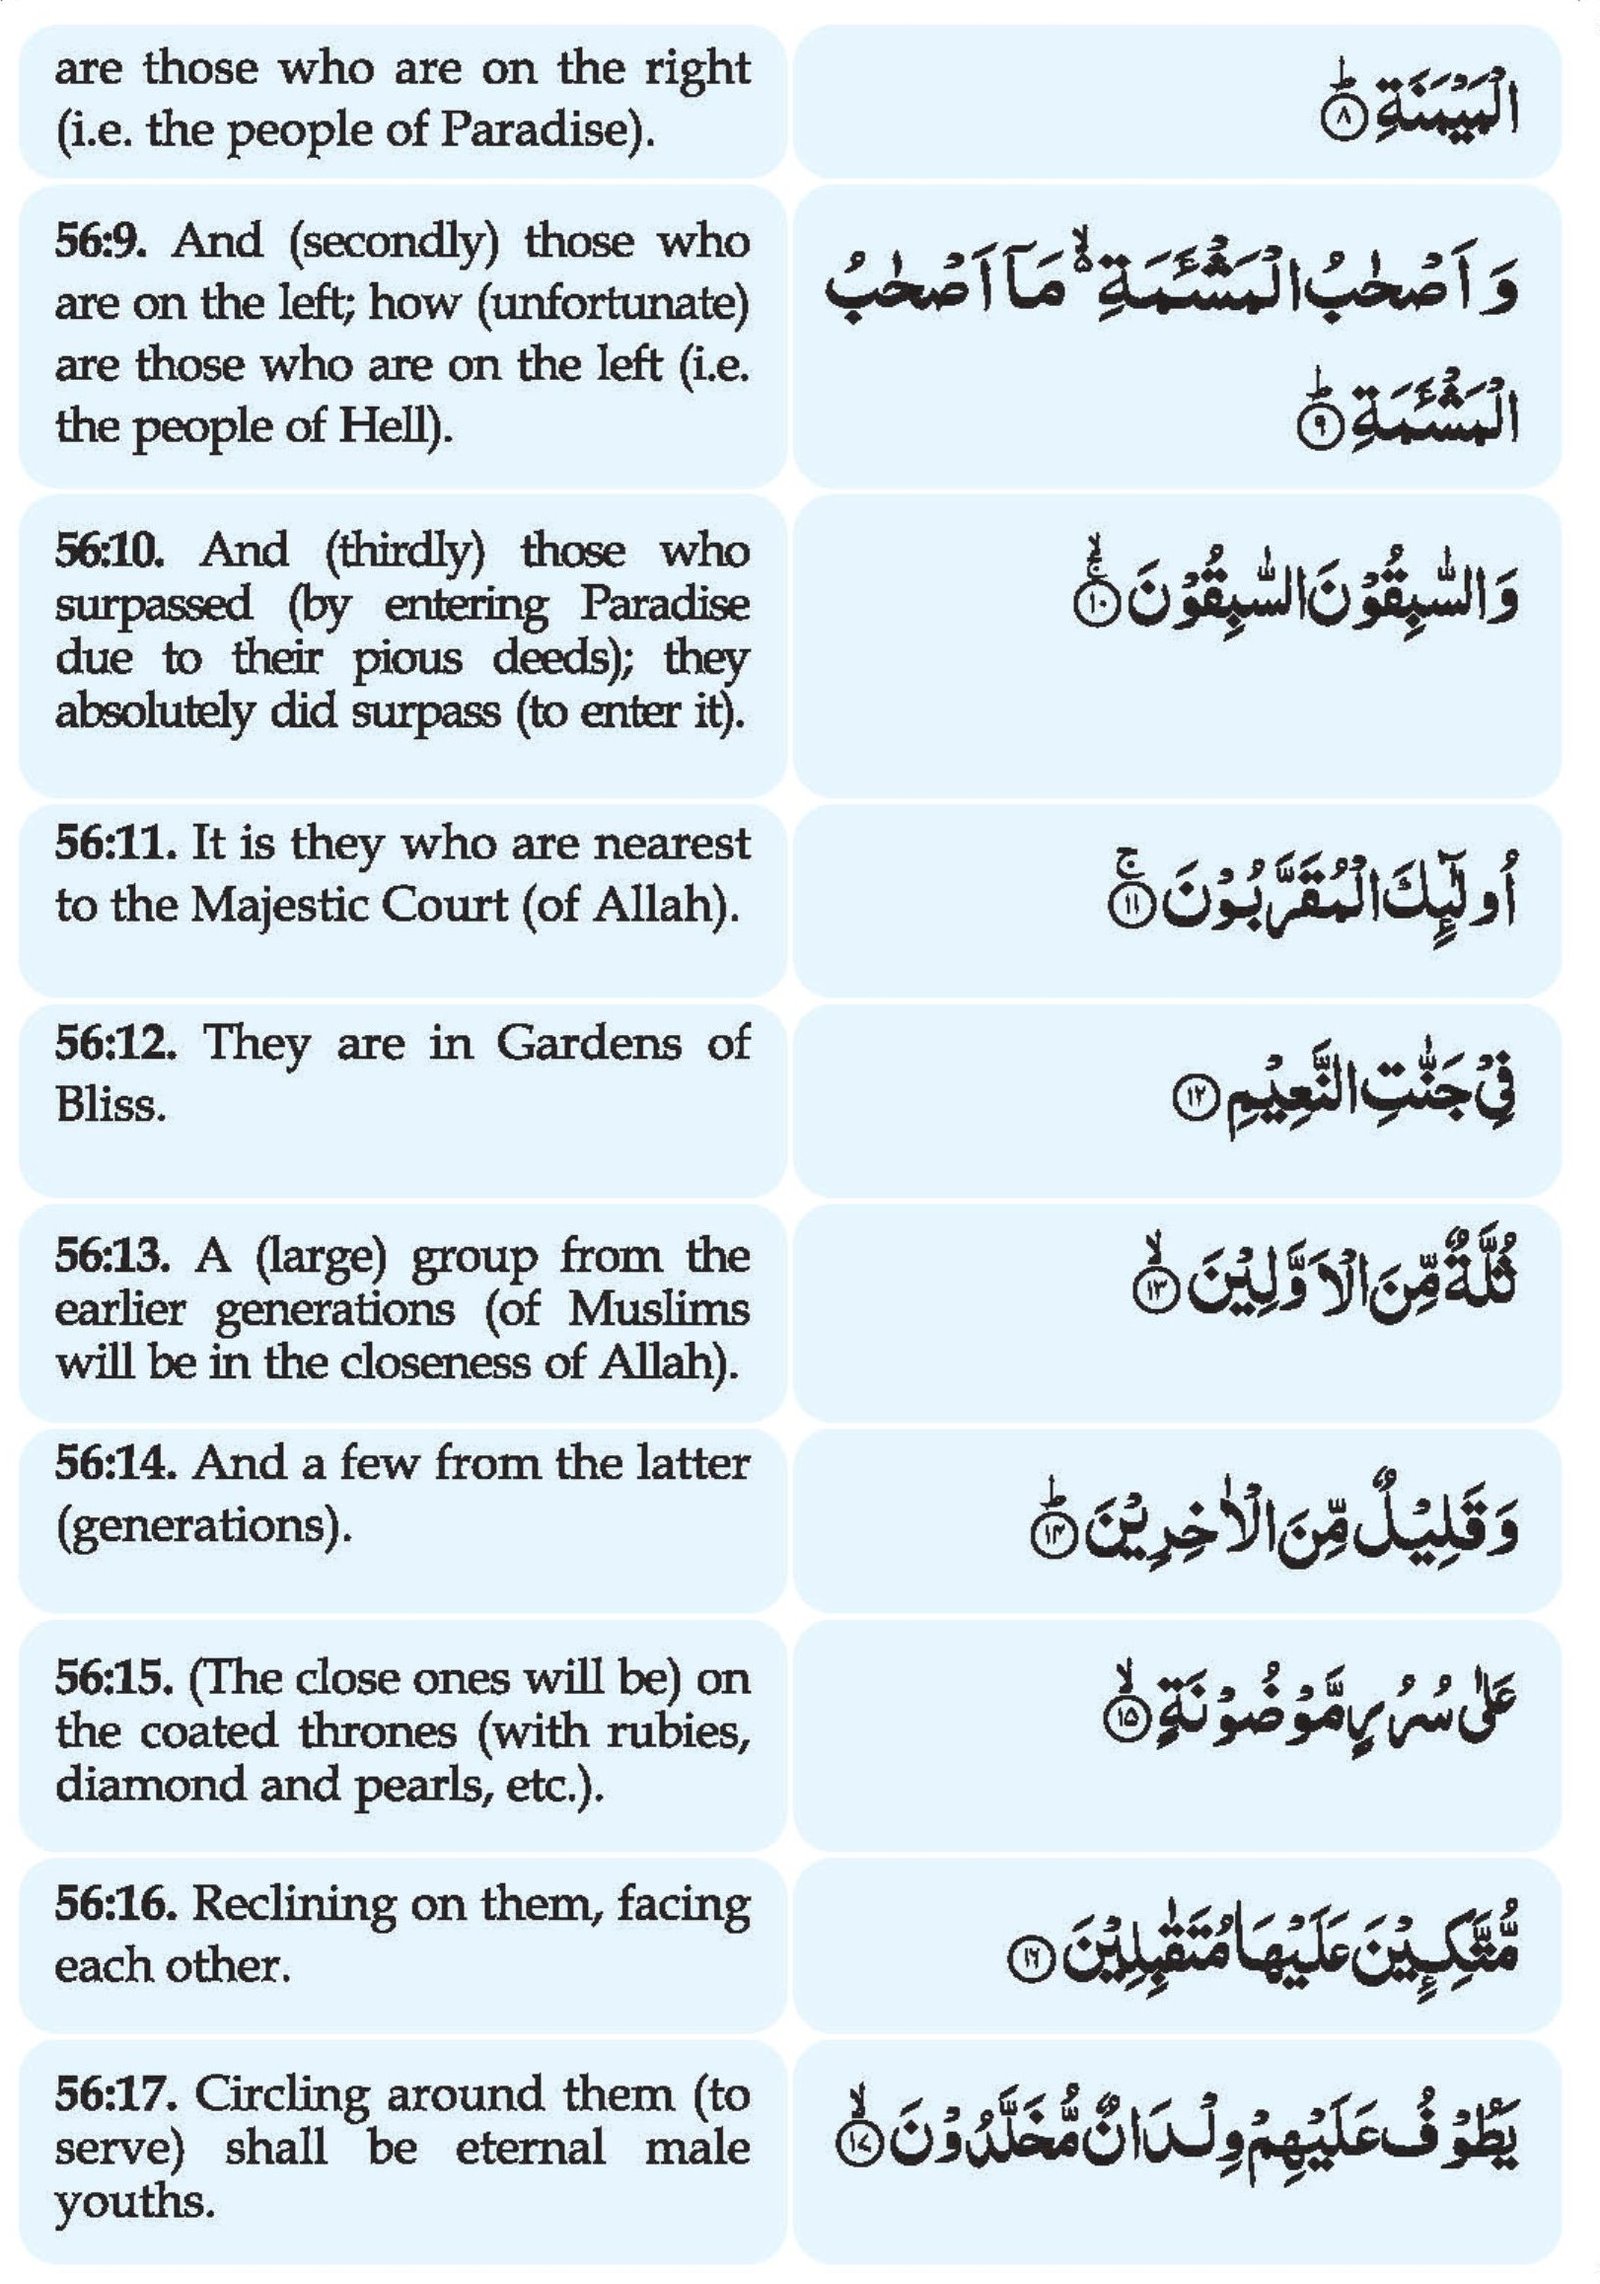 are those who are on the right
(i.e. the people of Paradise).
الْمَيْمَنَةِ ؕ﴿۸﴾
56:9. And (secondly) those who
are on the left; how (unfortunate)
are those who are on the left (i.e.
the people of Hell).
وَ اَصْحٰبُ الْمَشْـَٔمَةِ ۬ۙ مَاۤ اَصْحٰبُ
الْمَشْـَٔمَةِ ؕ﴿۹﴾
56:10. And (thirdly) those who
surpassed (by entering Paradise
due to their pious deeds); they
absolutely did surpass (to enter it).
وَ السّٰبِقُوْنَ السّٰبِقُوْنَ ۚۙ﴿۱۰﴾
56:11. It is they who are nearest
to the Majestic Court (of Allah).
اُولٰٓئِكَ الْمُقَرَّبُوْنَ ۚ﴿۱۱﴾
56:12. They are in Gardens of
Bliss.
فِيْ جَنّٰتِ النَّعِيْمِ ﴿۱۲﴾
56:13. A (large) group from the
earlier generations (of Muslims
will be in the closeness of Allah).
ثُلَّةٌ مِّنَ الْاَوَّلِيْنَ ۙ﴿۱۳﴾
56:14. And a few from the latter
(generations).
وَ قَلِيْلٌ مِّنَ الْاٰخِرِيْنَ ؕ﴿۱۴﴾
56:15. (The close ones will be) on
the coated thrones (with rubies,
diamond and pearls, etc.).
عَلٰى سُرُرٍ مَّوْضُوْنَةٍ ۙ﴿۱۵﴾
56:16. Reclining on them, facing
each other.
مُّتَّكِـِٕيْنَ عَلَيْهَا مُتَقٰبِلِيْنَ ﴿۱۶﴾
56:17. Circling around them (to
serve) shall be eternal male
youths.
يَطُوْفُ عَلَيْهِمْ وِلْدَانٌ مُّخَلَّدُوْنَ ۙ﴿۱۷﴾